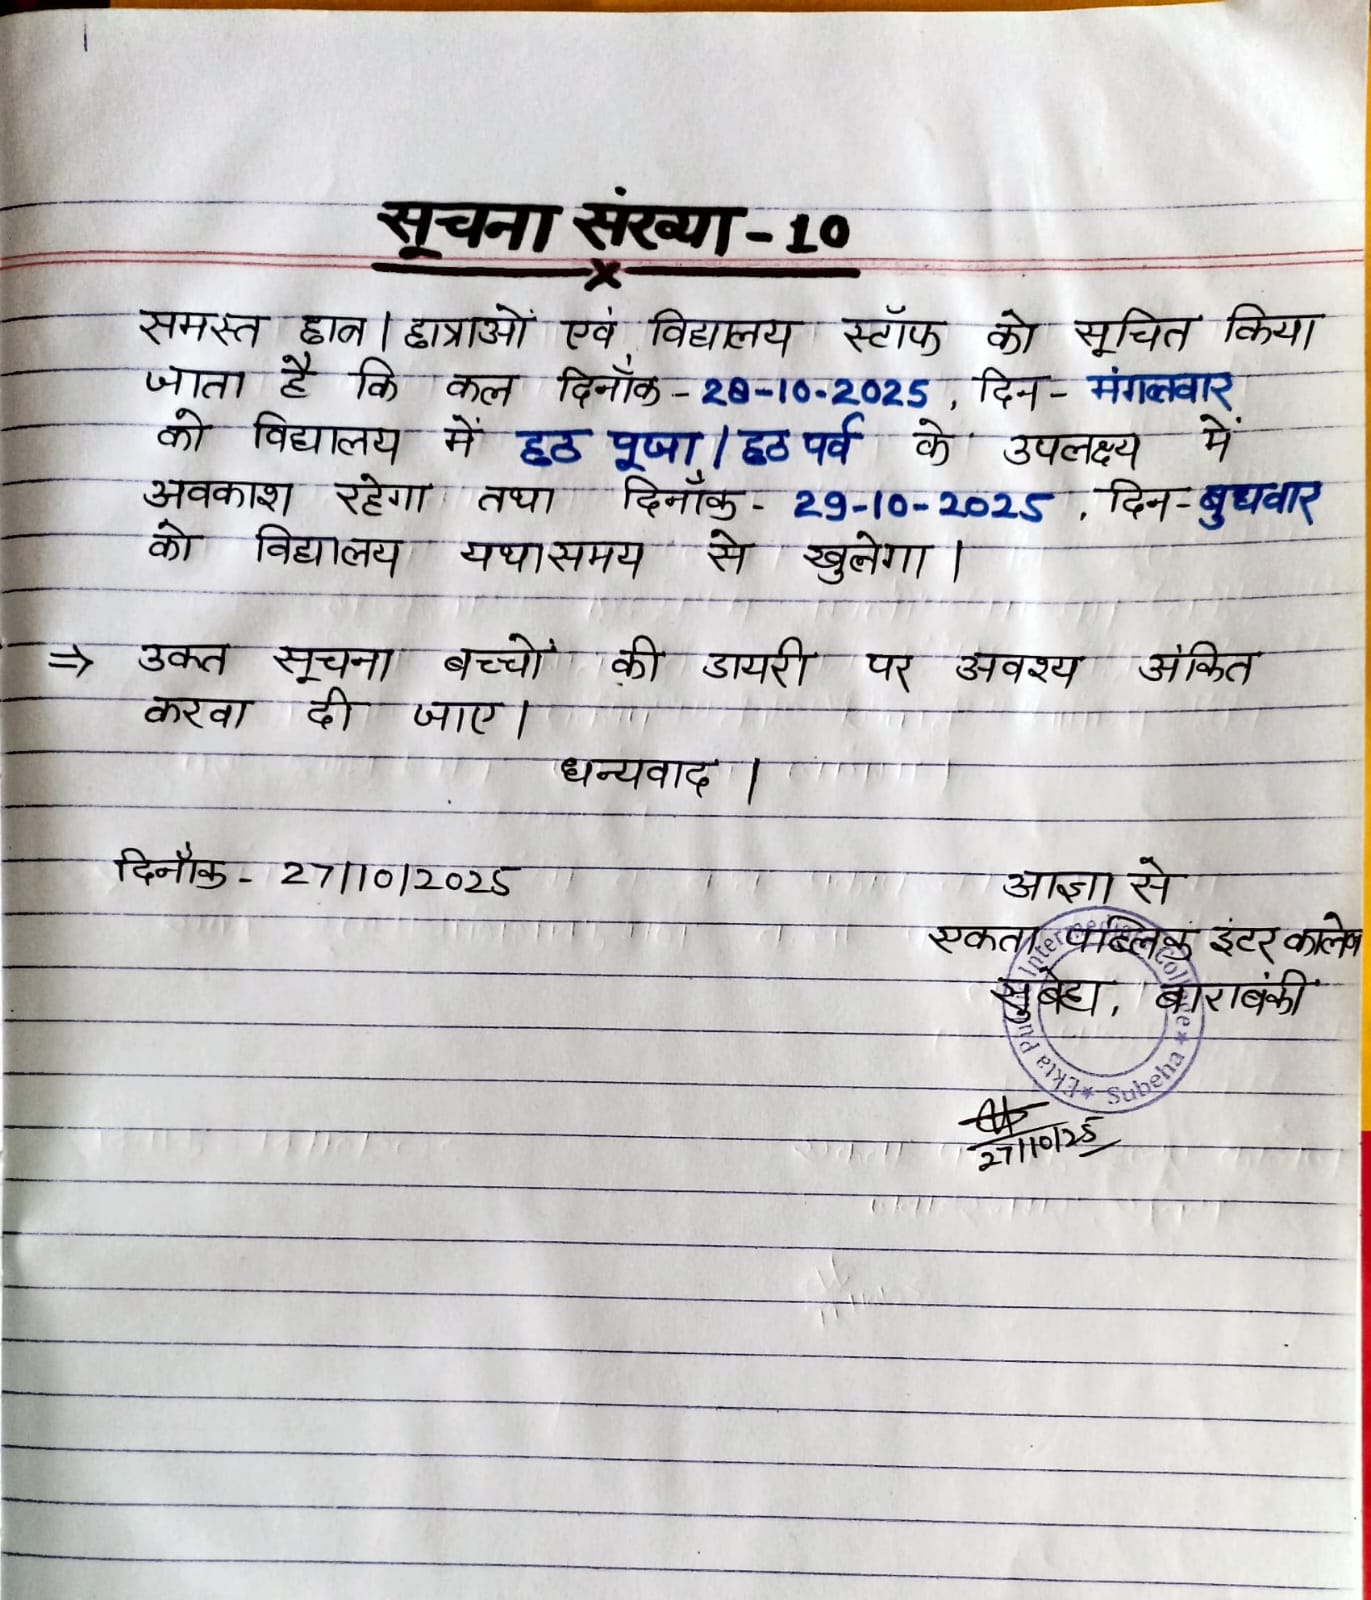 सूचना संख्या - 10
समस्त छात्र / छात्राओं एवं विद्यालय स्टॉफ को सूचित किया
जाता है कि कल दिनाँक - 28-10-2025, दिन - मंगलवार
को विद्यालय में छठ पूजा / छठ पर्व के उपलक्ष्य में
अवकाश रहेगा तथा दिनाँक - 29-10-2025, दिन - बुधवार
को विद्यालय यथासमय से खुलेगा।
⇒ उक्त सूचना बच्चों की डायरी पर अवश्य अंकित
करवा दी जाए।
धन्यवाद।
दिनाँक - 27/10/2025
आज्ञा से
एकता पब्लिक इंटर कालेज
सुबेहा, बाराबंकी
Ekta Public Intermediate College
Subeha
27/10/25